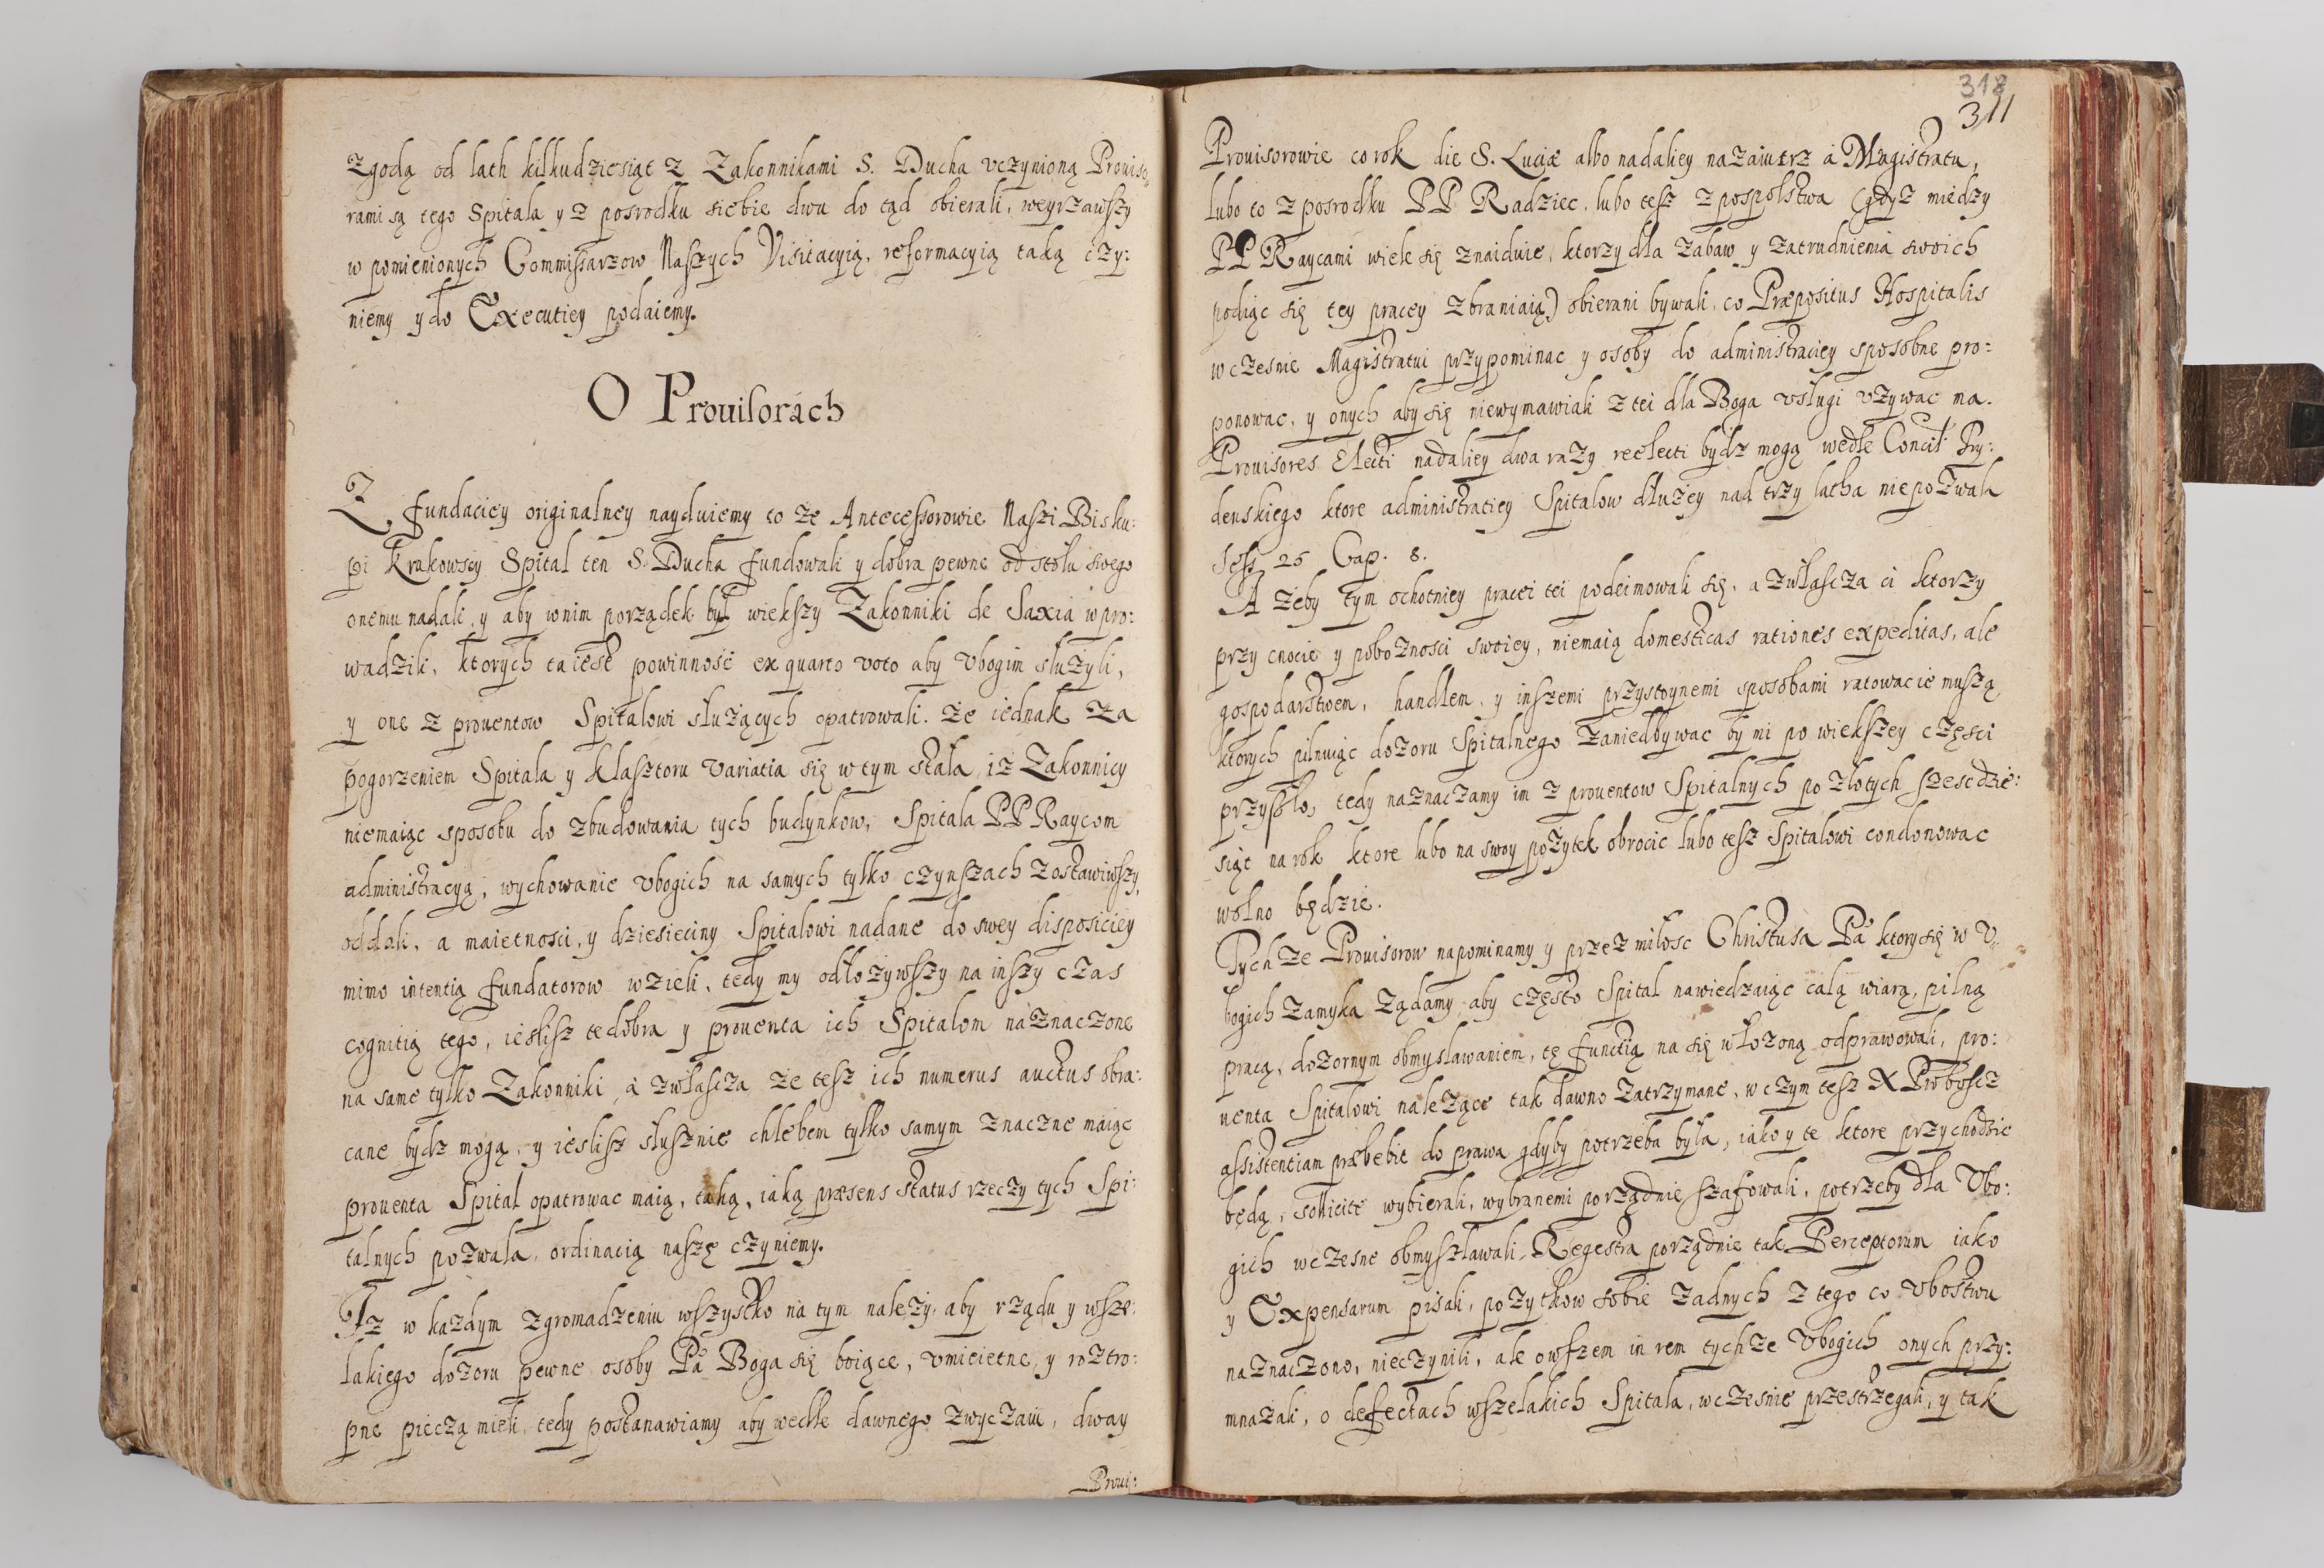 zgodą od lath kilkudziesiąt z Zakonnikami S. Ducha vczynioną Prouiso,
rami są tego Spitala y z posrodku siebie dwu do tąd obierali, weyrzawszy
w pomienionych Commissarzow Naszych Visitacyią, reformacyią taką czy:
niemy y do Executiey podaiemy.
O Prouisorách
Z fundaciey originalney nayduiemy to że Antecessorowie Naszi Bisku:
pi Krakowscy Spital ten S. Ducha fundowali y dobra pewne od stołu swego
onemu nadali, y aby w nim porządek był większy Zakonniki de Saxia wpro:
wadzili, ktorych ta iest powinność ex quarto voto aby Vbogim służyli,
y one z prouentow Spitalowi służących opatrowali. że iednak za
pogorzeniem Spitala y Klasztoru Variatia się w tym stała, iż Zakonnicy
niemaiąc sposobu do zbudowania tych budynkow, Spitala PP Raycom
administracyą, wychowanie vbogich na samych tylko czynszach zostawiwszy,
oddali, a maietnosci, y dziesieciny Spitalowi nadane do swey disposiciey
mimo intentią fundatorow wzieli, tedy my odłożywszy na inszy czas
cognitią tego, ieslisz te dobra y prouenta ich Spitalom náznaczone
na same tylko Zakonniki, á zwłascza że tesz ich numerus auctus obra:
cane bydz mogą, y ieslisz słusznie chlebem tylko samym znaczne maiąc
prouenta Spital opatrowac maią, taką, iaką præsens status rzeczy tych Spi:
talnych pozwala, ordinacią naszę czyniemy.
Iż w każdym zgromadzeniu wszystko na tym należy, aby rządu y wsze:
lakiego dozoru pewne osoby Pá Boga się boiące, vmieietne, y roztro:
pne pieczą mieli, tedy postanawiamy aby wedle dawnego zwyczaiu, dway
Proui:
318
311
Prouisorowie co rok die S. Luciæ albo nadaliey nazaiutrz á Magistratu,
lubo to z posrodku PP Radziec, lubo tesz z pospolstwa (gdyż miedzy
PP Raycami wiele się znaiduie, ktorzy dla zabaw y zatrudnienia swoich
podiąc się tey pracey zbraniaią) obierani bywali, co Præpositus Hospitalis
wczesnie Magistratui przypominac y osoby do administraciey sposobne pro:
ponowac, y onych aby się niewymawiali z tei dla Boga vsługi vżywac ma.
Prouisores Electi nadaliey dwa razy reelecti bydz mogą wedle Concil Try:
denskiego ktore administratiey Spitalow dłużey nad trzy latha niepozwala
Sess 25 Cap. 8.
A żeby tym ochotniey pracei tei podeimowali się, a zwłascza ci ktorzy
przy cnocie y pobożnosci swoiey, niemaią domesticas rationes expeditas, ale
gospodarstwem, handlem, y inszemi przystoynemi sposobami ratowac ie muszą
ktorych pilnuiąc dozoru Spitalnego zaniedbywac by mi po wiekszey części
przyszło, tedy naznaczamy im z prouentow Spitalnych po złotych szescdzie:
siąt na rok ktore lubo na swoy pożytek obrocic lubo tesz Spitalowi condonowac
wolno będzie.
Tychże Prouisorow napominamy y przez miłosc Christusa Pá ktory się w V:
bogich zamyka żądamy, aby często Spital nawiedzaiąc całą wiarą, pilną
pracą, dozornym obmyslawaniem, tę functią na się włożoną odprawowali, pro:
uenta Spitalowi należące tak dawno zatrzymane, w czym tesz X Proboscz
assistentiam præbebit do prawa gdyby potrzeba była, iako y te ktore przychodzic
będą, sollicite wybierali, wybranemi porządnie szafowali, potrzeby dla Vbo:
gich wczesne obmyszlawali, Regestra porządnie tak Perceptorum iako
y Expensarum pisali, pożytkow sobie żadnych z tego co Vbostwu
naznaczono, nieczynili, ale owszem in rem tychże Vbogich onych przy:
mnażali, o defectach wszelakich Spitala, wczesnie przestrzegali, y tak